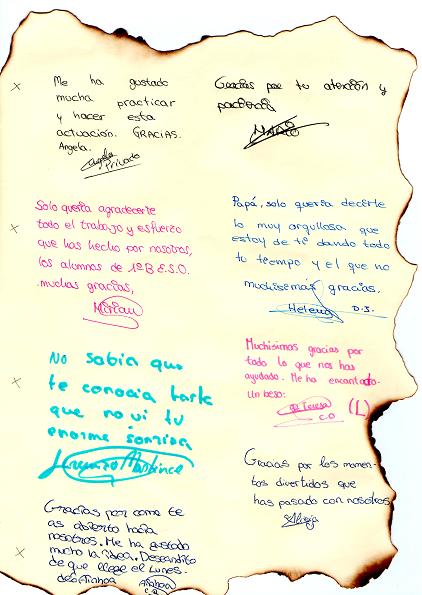 Me ha gustado
mucha practicar
y hacer esta
actuación. GRACIAS.
Angela.
Angela
Privado
Gracias por tu atención y
paciencia
MARIO
Solo quería agradecerte
todo el trabajo y esfuerzo
que has hecho por nosotros,
los alumnos de 1ºB E.S.O.
muchas gracias,
Miriam
Papá, solo quería decirte
lo muy orgullosa que
estoy de ti dando todo
tu tiempo y el que no
muchísemas gracias.
Helena D.S.
No sabia que
te conocia tarte
que no vi tu
enorme sonrisa
Martínez
Muchísimas gracias por
todo lo que nos has
ayudado. Me ha encantado.
Un beso:
Teresa (L)
C.O
Gracias por los momen-
tos divertidos que
has pasado con nosotros
Alicia
Gracias por como te
as abierto hacia
nosotros. Me ha gustado
mucho la idea. Deseandito
de que llege el lunes.
Ainhoa